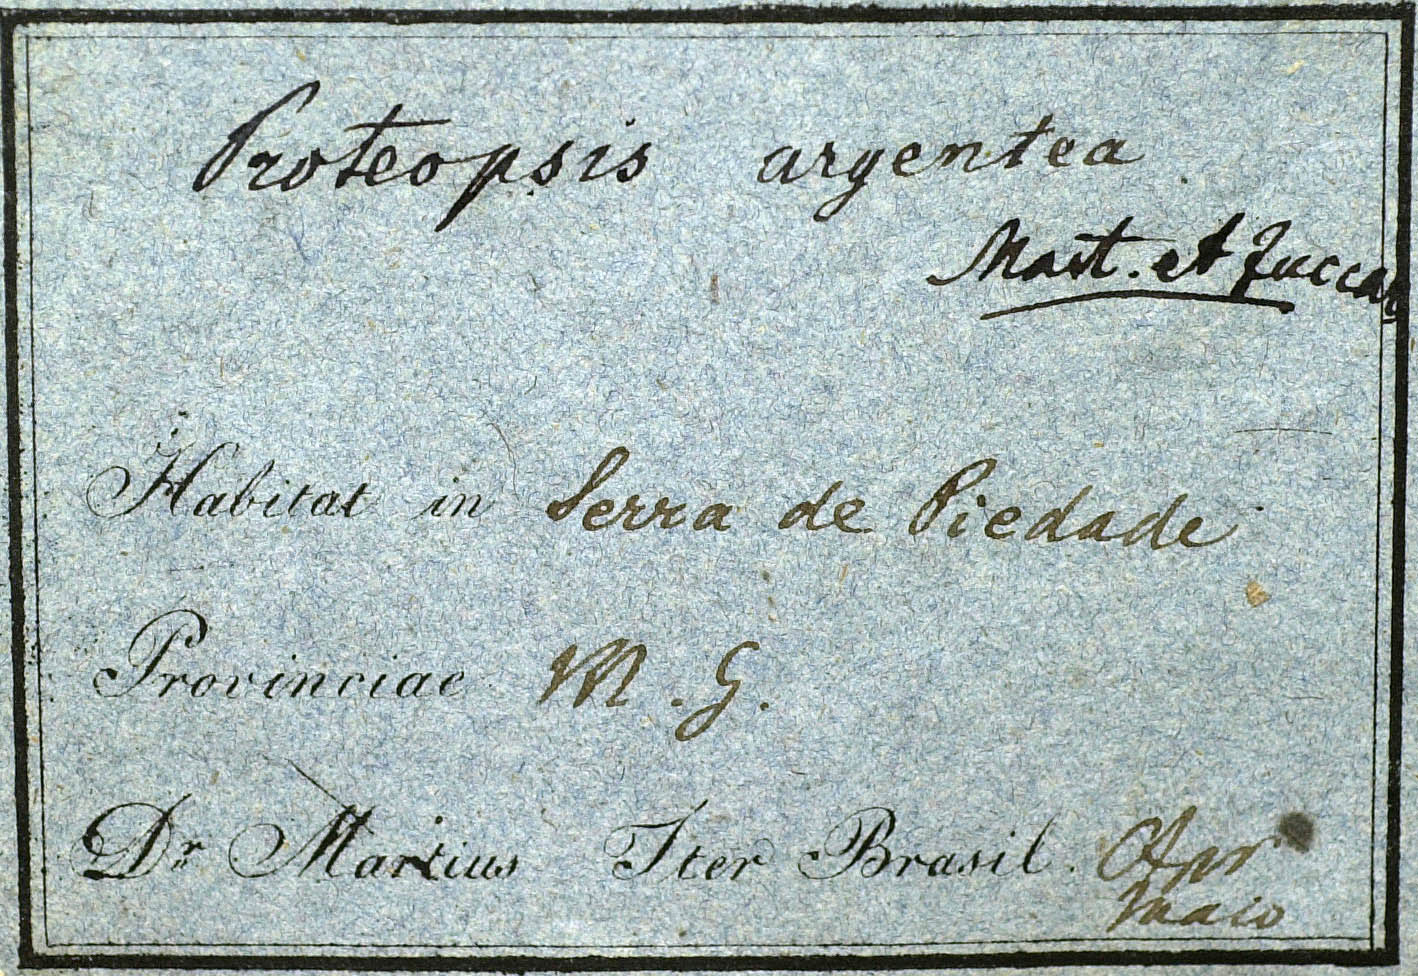 Proteopsis argentea
Mart. et Zuccar
Habitat in Serra de Piedade
Provinciae M. G.
Dr Martius Iter Brasil. Apr
Maio